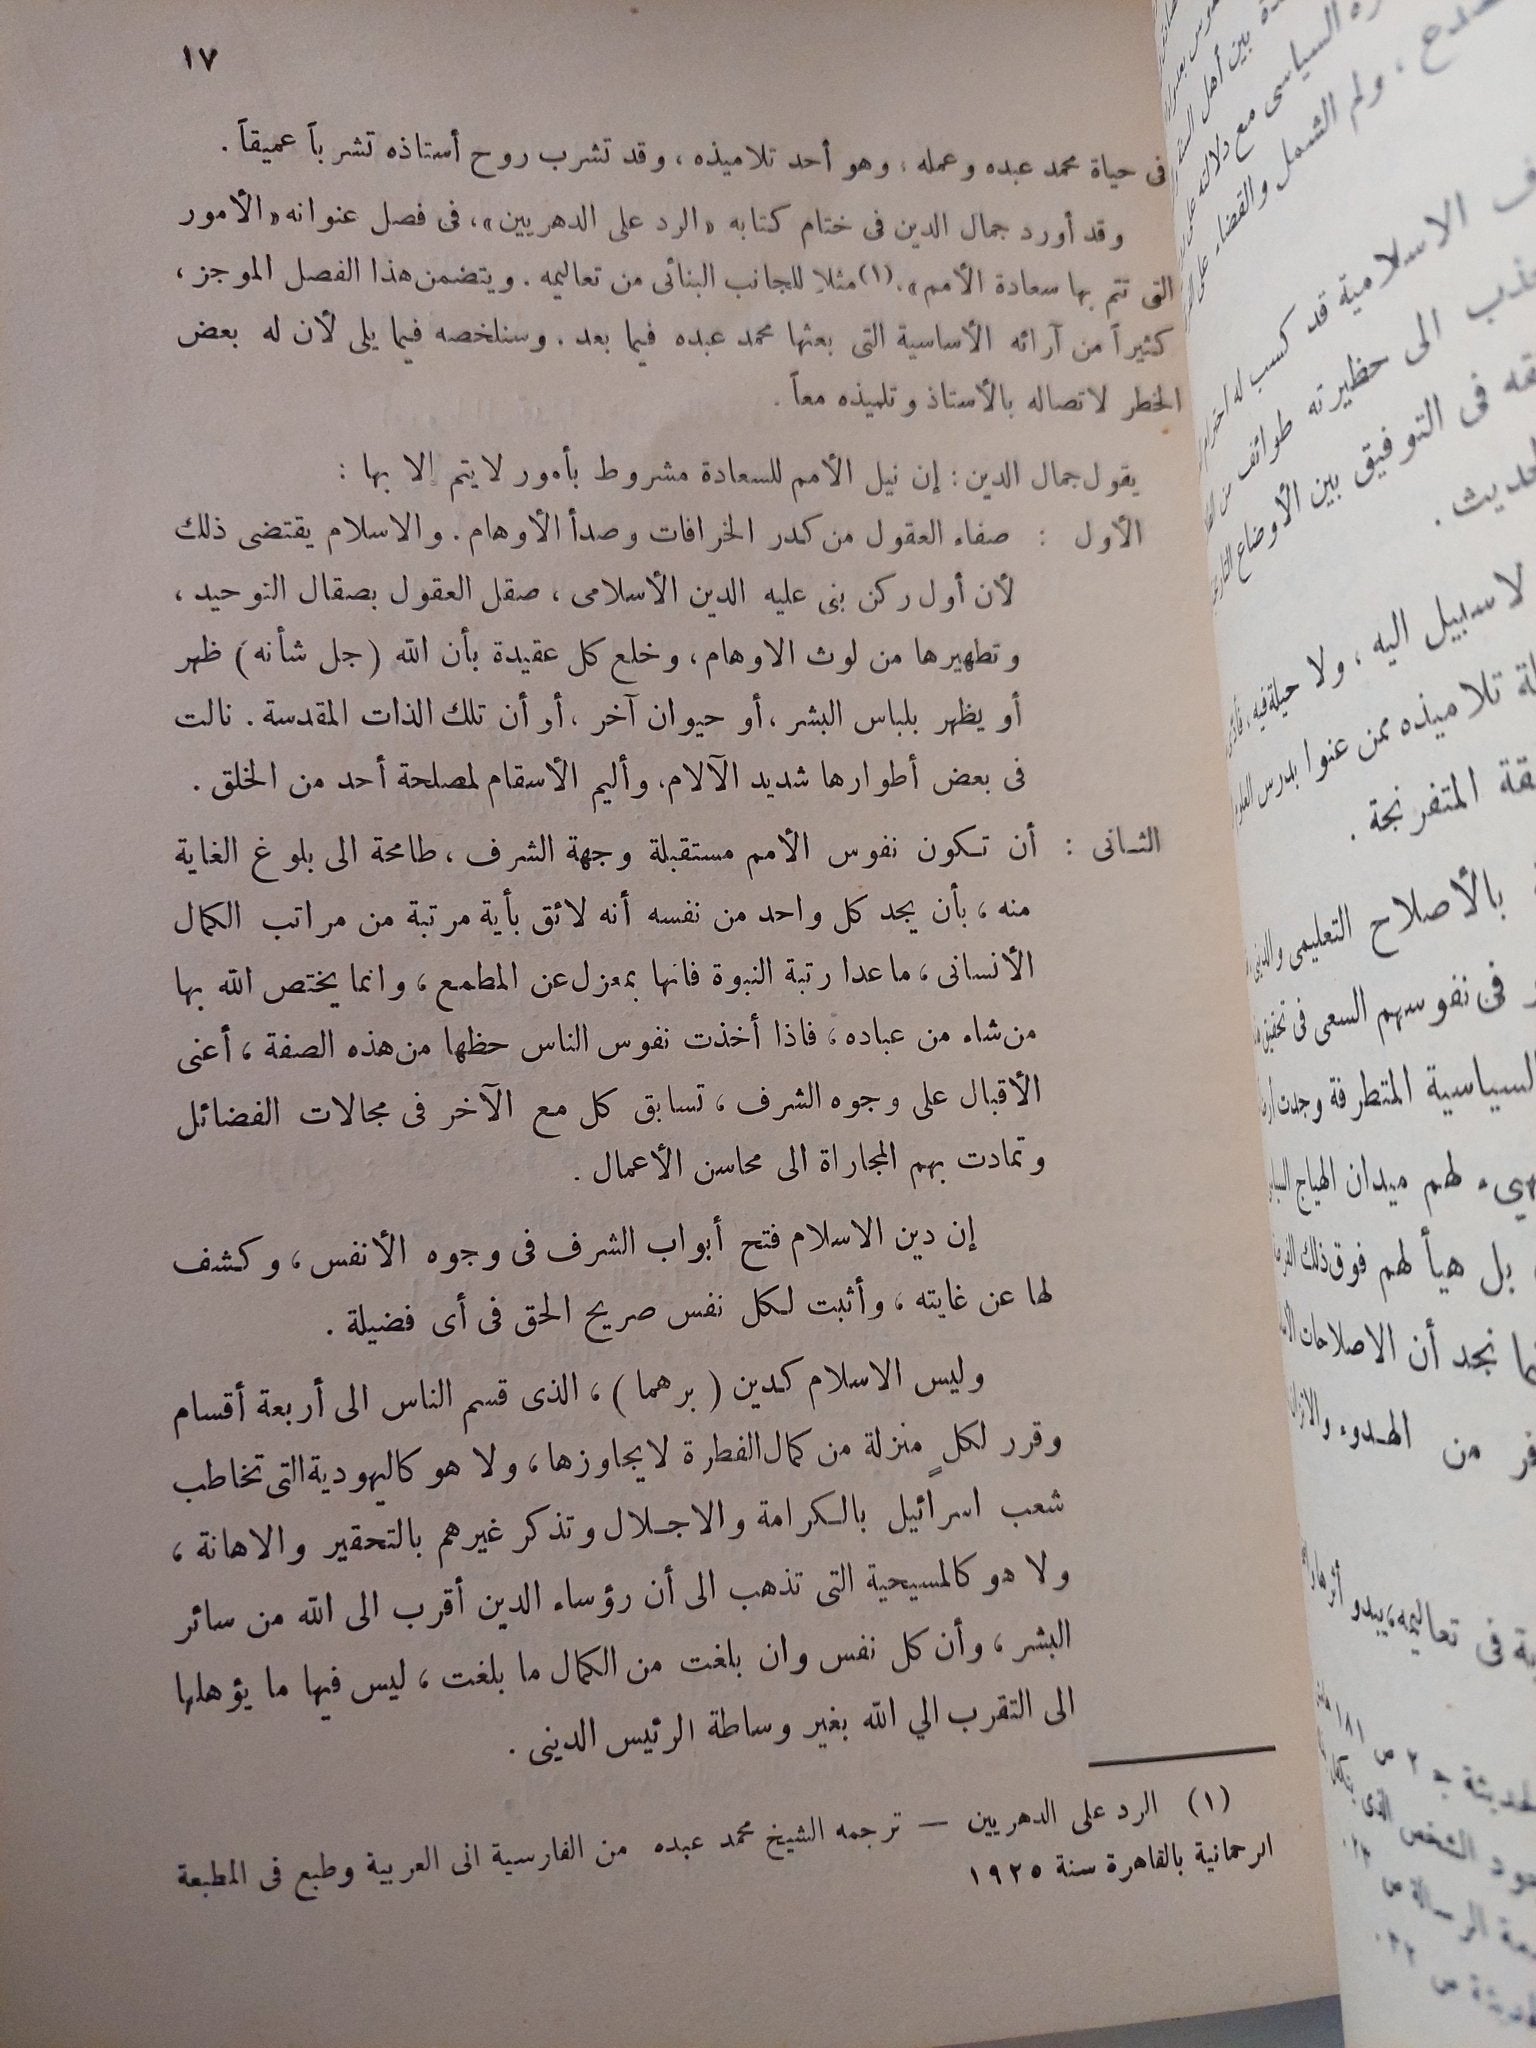 ١٧
فى حياة محمد عبده وعمله ، وهو أحد تلاميذه ، وقد تشرب روح أستاذه تشرباً عميقاً .
وقد أورد جمال الدين فى ختام كتابه «الرد على الدهريين» ، فى فصل عنوانه «الأمور
التى تتم بها سعادة الأمم» . (١) مثلا للجانب البنائى من تعاليمه . ويتضمن هذا الفصل الموجز ،
كثيراً من آرائه الأساسية التى بعثها محمد عبده فيما بعد . وسنلخصه فيما يلى لأن له بعض
الخطر لاتصاله بالأستاذ وتلميذه معاً .
يقول جمال الدين : إن نيل الأمم للسعادة مشروط بأمور لا يتم إلا بها :
الأول : صفاء العقول من كدر الخرافات وصدأ الأوهام . والاسلام يقتضى ذلك
لأن أول ركن بنى عليه الدين الأسلامى ، صقل العقول بصقال التوحيد ،
وتطهيرها من لوث الاوهام ، وخلع كل عقيدة بأن الله (جل شأنه) ظهر
أو يظهر بلباس البشر ، أو حيوان آخر ، أو أن تلك الذات المقدسة . نالت
فى بعض أطوارها شديد الآلام ، وأليم الأسقام لمصلحة أحد من الخلق .
الثـانى : أن تـكون نفوس الأمم مستقبلة وجهة الشرف ، طامحة الى بلوغ الغاية
منه ، بأن يجد كل واحد من نفسه أنه لائق بأية مرتبة من مراتب الكمال
الأنسانى ، ماعدا رتبة النبوة فانها بمعزل عن المطمع ، وانما يختص الله بها
من شاء من عباده ، فاذا أخذت نفوس الناس حظها من هذه الصفة ، أعنى
الأقبال على وجوه الشرف ، تسابق كل مع الآخر فى مجالات الفضائل
وتمادت بهم المجاراة الى محاسن الأعمال .
إن دين الاسلام فتح أبواب الشرف فى وجوه الأنفس ، وكشف
لها عن غايته ، وأثبت لـكل نفس صريح الحق فى أى فضيلة .
وليس الاسلام كدين ( برهما ) ، الذى قسم الناس الى أربعة أقسام
وقرر لكلٍ منزلة من كمال الفطرة لا يجاوزها ، ولا هو كاليهودية التى تخاطب
شعب اسرائيل بالـكرامة والاجـلال وتذكر غيرهم بالتحقير والاهانة ،
ولا هو كالمسيحية التى تذهب الى أن رؤساء الدين أقرب الى الله من سائر
البشر ، وأن كل نفس وان بلغت من الكمال ما بلغت ، ليس فيها ما يؤهلها
الى التقرب الي الله بغير وساطة الرئيس الدينى .
(١) الرد على الدهريين — ترجمه الشيخ محمد عبده من الفارسية الى العربية وطبع فى المطبعة
الرحمانية بالقاهرة سنة ١٩٢٥
بين أهل
السياسى مع دلالته على
، ولم الشمل والقضاء على
الاسلامية قد كسب له
الى حظيرته طوائف من
فى التوفيق بين الأوضاع
لا سبيل اليه ، ولا حيلة فيه ،
تلاميذه ممن عنوا بدرس
المتفرنجة .
بالأصلاح التعليمى
فى نفوسهم السعى فى تحقيق
السياسية المتطرفة وجدت
لهم ميدان الهياج
بل هيأ لهم فوق ذلك
نجد أن الاصلاحات
من الهـدوء
فى تعاليمه ، يبدو
ج ٢ ص ١٨١